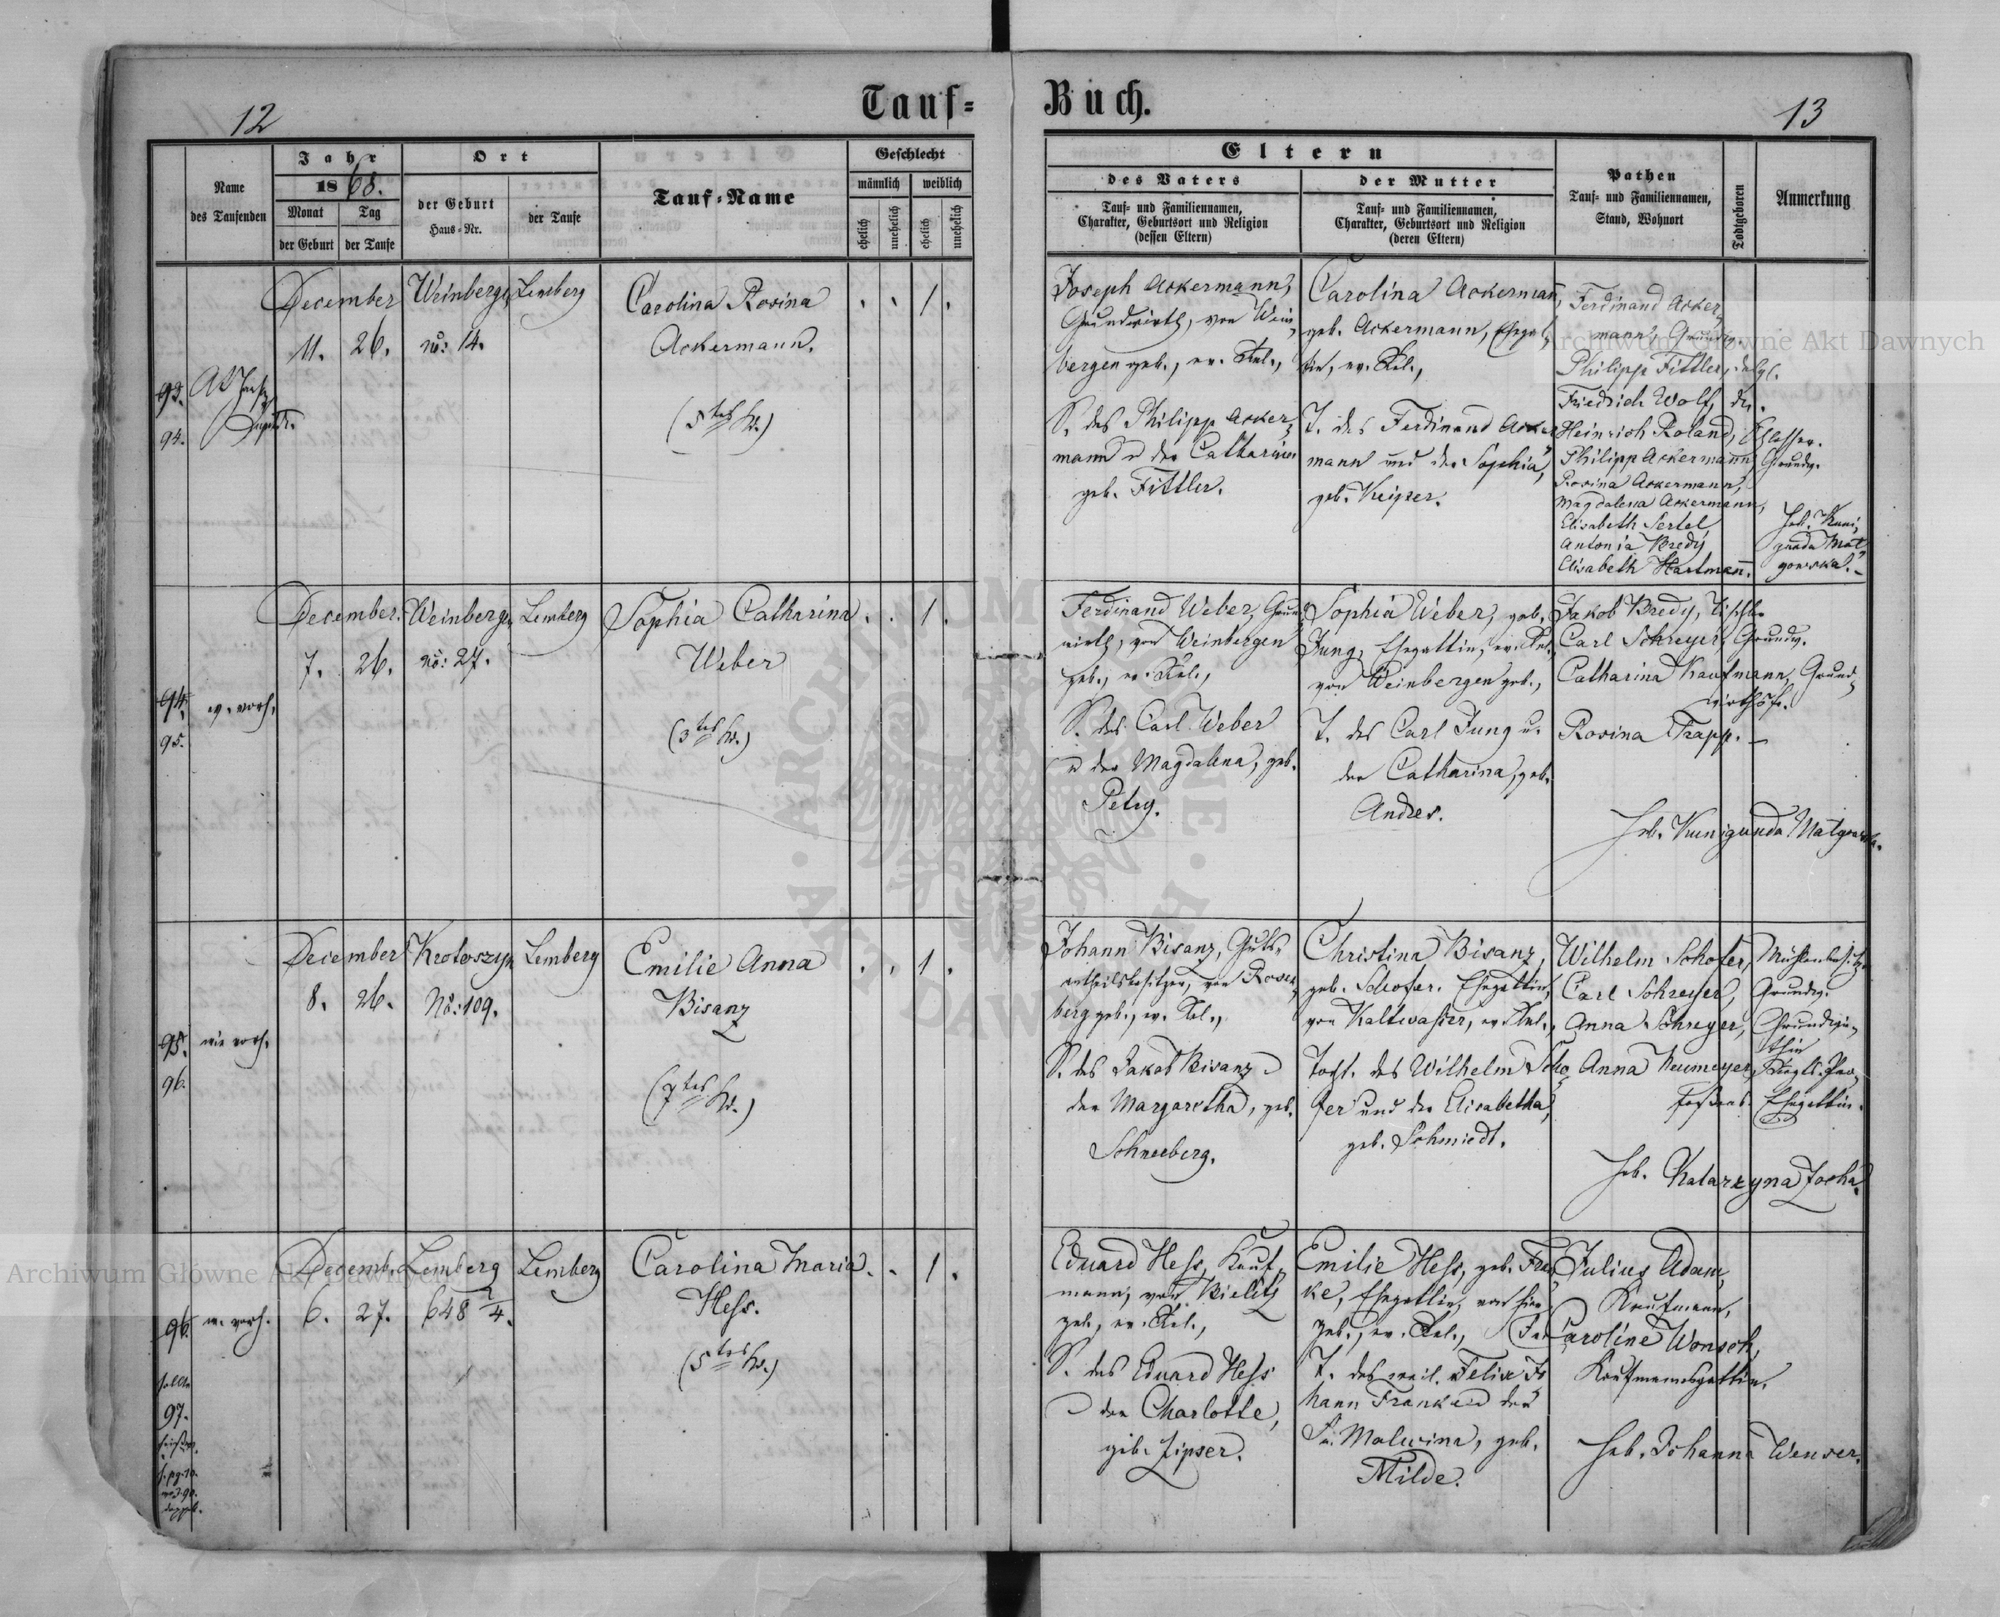 Tauf-
Buch.
12
13
Name
des Taufenden
Jahr
1868.
Monat
der Geburt
Tag
der Taufe
Ort
der Geburt
Haus-Nr.
der Taufe
Tauf-Name
Geschlecht
männlich
weiblich
ehelich
unehelich
ehelich
unehelich
Eltern
des Vaters
Tauf- und Familiennamen,
Charakter, Geburtsort und Religion
(dessen Eltern)
der Mutter
Tauf- und Familiennamen,
Charakter, Geburtsort und Religion
(deren Eltern)
Pathen
Tauf- und Familiennamen,
Stand, Wohnort
Todtgeboren
Anmerkung
93.
94.
December
11. 26.
Weinbergen
No: 14.
Lemberg
Carolina Rosina
Ackermann.
(5tes K.)
1.
Joseph Ackermann,
Grundwirth, von Wein-
bergen geb., ev. Rel.,
S. des Philipp Acker-
mann u der Catharina
geb. Fittler.
Carolina Ackermann,
geb. Ackermann, Ehegat-
tin, ev. Rel.,
T. des Ferdinand Acker-
mann und der Sophia,
geb. Keiper.
Ferdinand Acker-
mann, Grundw.
Philipp Fittler, dsgl.
Friedrich Wolf, do.
Heinrich Roland, Schlosser.
Philipp Ackermann, Grundw.
Rosina Ackermann,
Magdalena Ackermann,
Elisabeth Sertel
Antonia Bredy
Elisabeth Hartmann.
Heb. Kuni-
gunda Mat-
gowska.
94.
95.
w. vorh.
December.
7. 26.
Weinbergen
No: 27.
Lemberg
Sophia Catharina
Weber
(3tes K.)
1.
Ferdinand Weber, Grund-
wirth, von Weinbergen
geb., ev. Rel.,
S. des Carl Weber
u der Magdalena, geb.
Petry.
Sophia Weber, geb.
Jung, Ehegattin, ev. Rel.,
von Weinbergen geb.,
T. des Carl Jung u.
der Catharina, geb.
Andres.
Jakob Bredy, Tischler
Carl Schreyer, Grundw.
Catharina Kaufmann, Grund-
Rosina Trapp.
Heb. Kunigunda Matgowska.
95.
96.
wie vorh.
December
8. 26.
Krotoszyn
No: 109.
Lemberg
Emilie Anna
Bisanz
(7tes K.)
1.
Johann Bisanz, Guts-
antheilsbesitzer, von Rosen-
berg geb., ev. Rel.,
S. des Jakob Bisanz u
der Margaretha, geb.
Schneeberg.
Christina Bisanz,
geb. Schofer. Ehegattin,
von Kaltwasser, ev. Rel.,
Tocht. des Wilhelm Scho-
fer und der Elisabetha,
geb. Schmiedt.
Wilhelm Schofer, Mühlenbesitzer
Carl Schreyer, Grundw.
Anna Schreyer, Grundwir-
thin
Anna Neumeyer,
Ehegattin.
Heb. Katarzyna Zocha.
96.
w. vorh.
sollte
97.
heißen.
Decemb.
6. 27.
Lemberg
648 2/4.
Lemberg
Carolina Maria
Hess.
(5tes K.)
1.
Eduard Hess, Kauf-
mann, von Bielitz
geb., ev. Rel.,
S. des Eduard Hess
u der Charlotte,
geb. Zipser.
Emilie Hess, geb. Fran-
ke, Ehegattin, von hier
geb., ev. Rel.,
T. des weil. Felix Jo-
hann Franke u der
Malwina, geb.
Milde.
Julius Adam,
Kaufmann,
Caroline Wonsch,
Kaufmannsgattin.
Heb. Johanna Wenser.
Archiwum Główne Akt Dawnych
Archiwum Główne Akt Dawnych
ARCHIWUM GŁÓWNE AKT DAWNYCH